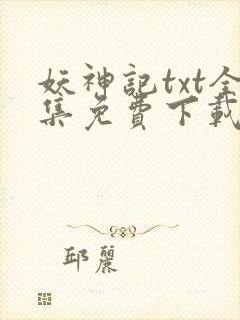 妖神記txt全
集免費下載
邱麗